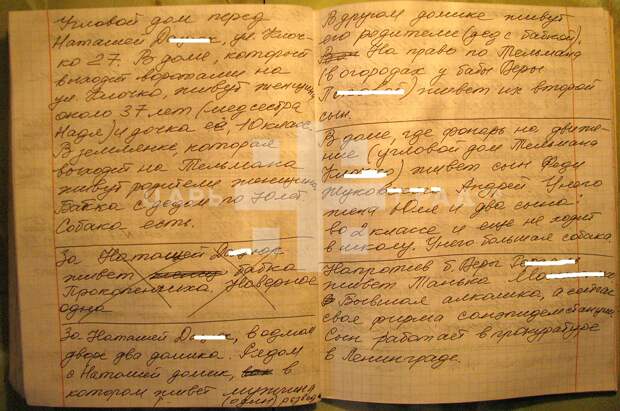 Угловой дом перед
Наташей Д, ул. Клоч-
ко 27. В доме, который
выходит воротами на
ул. Клочко, живут женщина
около 37 лет (медсестра
Надя) и дочка её, 10 класс.
В землянке, которая
выходит на Тельмана
живут родители женщины
Бабка с дедом по 70 лет.
Собака есть.
За Наташей Д
живет бабка
Прокопенчиха. Наверное
одна
За Наташей Д, в одном
дворе два домика. Рядом
с Наташей домик, в
котором живет мужчина
(один)
В другом домике живут
его родители (дед с бабкой).
На право по Тельмана
(в огородах у бабы Веры
П) живет их второй
сын.
В доме, где фонарь на движе-
ние (угловой дом Тельмана
) живет сын Феди
Жуков Андрей У него
жена Юля и два сына
во 2 классе и еще не ходит
в школу. У него большая собака.
Напротив б. Веры
живет Танька М
Бывшая алкашка, а сейчас
своя фирма санэпидемстанция.
Сын работает в прокуратуре
в Ленинграде.